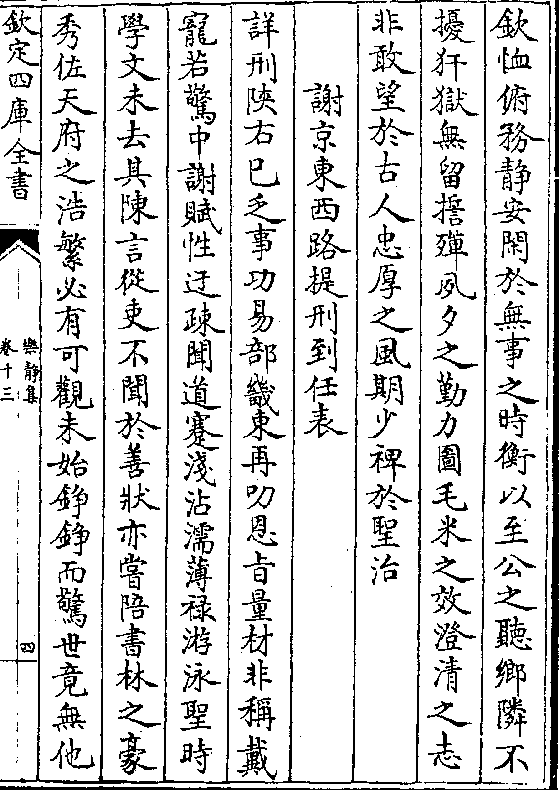 欽恤俯務靜安閑於無事之時衡以至公之聽鄉隣不
擾犴獄無留誓殫夙夕之勤力圖毛米之效澄清之志
非敢望於古人忠厚之風期少裨於聖治
謝京東西路提刑到任表
詳刑陝右已乏事功易部畿東再叨恩旨量材非稱戴
寵若驚中謝賦性迂疎聞道蹇淺沾濡薄禄游泳聖時
學文未去其陳言從吏不聞於善狀亦嘗陪書林之豪
秀佐天府之浩繁必有可觀未始錚錚而驚世竟無他
欽定四庫全書
樂靜集
卷十三
四